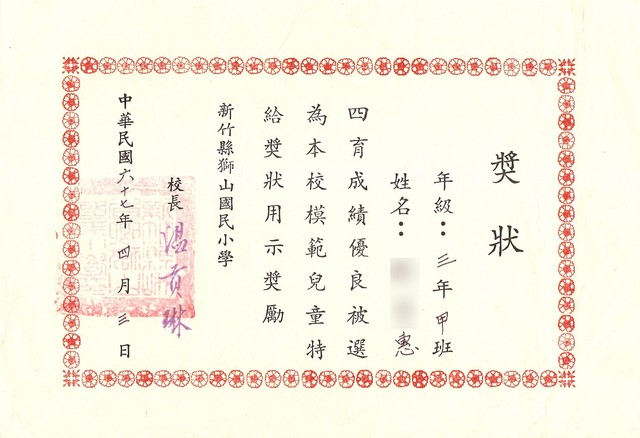 獎狀
年級：三年甲班
姓名：惠
四育成績優良被選
為本校模範兒童特
給獎狀用示獎勵
新竹縣獅山國民小學
校長 溫貢琳
中華民國六十七年四月三日